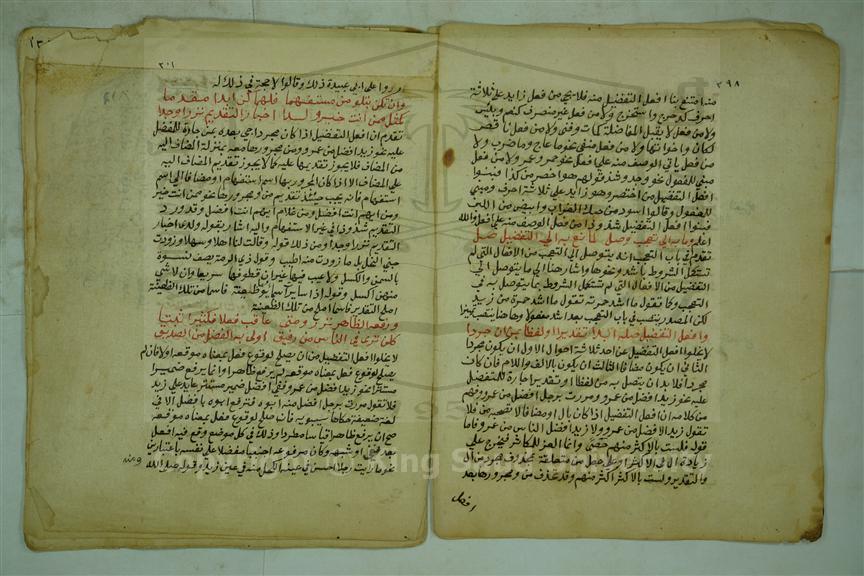 ٣٩٨
منه امتنع بنا افعل التفضيل منه فلا يبنى من فعل زايد على ثلاثة
احرف كدحرج واستخرج ولا من فعل غير متصرف كنعم وبئس
ولا من فعل لا يقبل المفاضلة كمات وفنى ولا من فعل ناقص
ككان واخواتها ولا من فعل منفى نحو ما عاج وما ضرب ولا
من فعل ياتى الوصف منه على افعل نحو حمر وعور ولا من فعل
مبنى للمفعول نحو وجد وشذ قولهم هو اخصر من كذا فبنوا
افعل التفضيل من اختصر وهو زايد على ثلاثة احرف ومبنى
للمفعول وقالوا اسود من حلك الغراب وابيض من اللبن
فبنوا افعل التفضيل شذوذا من فعل الوصف منه على افعل والله اعلم
وما به الى تعجب وصل لمانع به الى التفضيل صل
تقدم فى باب التعجب انه يتوصل الى التعجب من الافعال التى لم
تستكمل الشروط باشد ونحوها واشار هنا الى ما يتوصل الى
التفضيل من الافعال التى لم تستكمل الشروط بما يتوصل به فى
التعجب وكما تقول ما اشد حمرته تقول ما اشد حمرة من زيد
لكن المصدر ينتصب فى باب التعجب بعد اشد مفعولا وهاهنا ينتصب تمييزا
وافعل التفضيل صله ابدا تقديرا او لفظا بمن ان جردا
لا يخلوا افعل التفضيل عن احد ثلاثة احوال الاول ان يكون مجردا
الثانى ان يكون مضافا الثالث ان يكون بالالف واللام فان كان
مجردا فلا بد ان يتصل به من لفظا او تقديرا جارة للمفضل
عليه نحو زيد افضل من عمرو ومررت برجل افضل من عمرو وفهم
من كلامه ان افعل التفضيل اذا كان بال او مضافا لا تصحبه من فلا
تقول زيد الافضل من عمرو ولا زيد افضل الناس من عمرو فاما
قوله فلست بالاكثر منهم حصى وانما العزة للكاثر فيخرج على
زيادة الالف واللام
والتقدير ولست بالاكثر اكثر منهم وقد تحذف من ومجرورها بعد
افعل
٣٠١
وردوا على ابى عبيدة ذلك وقالوا لا حجة فى ذلك له
وان تكن بتلو من مستفهما فلهما كن ابدا مقدما
كمثل ممن انت خير ولدى اخبار التقديم نزرا وجدا
تقدم ان افعل التفضيل اذا كان مجردا جى بعده بمن جارة للمفضل
عليه نحو زيد افضل من عمرو ومن ومجرورها معه بمنزلة المضاف اليه
من المضاف فلا يجوز تقديمها عليه كما لا يجوز تقديم المضاف اليه
على المضاف الا اذا كان المجرور بها اسم استفهام او مضافا الى اسم
استفهام فانه يجب حينئذ تقديم من ومجرورها نحو ممن انت خير
ومن ايهم انت افضل ومن غلام ايهم انت افضل وقد ورد
التقديم شذوذا فى غير الاستفهام واليه اشار بقوله ولدى اخبار
التقديم نزرا وجدا ومن ذلك قوله وقالت لنا اهلا وسهلا وزودت
جنى النحل بل ما زودت منه اطيب وقول ذى الرمة يصف نسوة
بالسمن والكسل ولا عيب فيها غير ان قطوفها سريع وان لا شى
منهن اكسل وقوله اذا سايرت اسما يوما ظعينة فاسما من تلك الظعينة
املح التقدير فاسما املح من تلك الظعينة
ورفعه الظاهر نزر ومتى عاقب فعلا فكثيرا ثبتا
كلن ترى فى الناس من رفيق اولى به الفضل من الصديق
لا يخلوا افعل التفضيل من ان يصلح لوقوع فعل بمعناه موقعه او لا فان لم
يصلح لوقوع فعل بمعناه موقعه لم يرفع ظاهرا وانما يرفع ضميرا
مستترا نحو زيد افضل من عمرو ففى افضل ضمير مستتر عايد على زيد
فلا تقول مررت برجل افضل منه ابوه فترفع ابوه بافضل الا فى
لغة ضعيفة حكاها سيبويه فان صلح لوقوع فعل بمعناه موقعه
صح ان يرفع ظاهرا قياسا مطردا وذلك فى كل موضع وقع فيه افعل
بعد نفى او شبهه وكان مرفوعه اجنبيا مفضلا على نفسه باعتبارين
نحو ما رايت رجلا احسن فى عينه الكحل منه فى عين زيد
ومنه